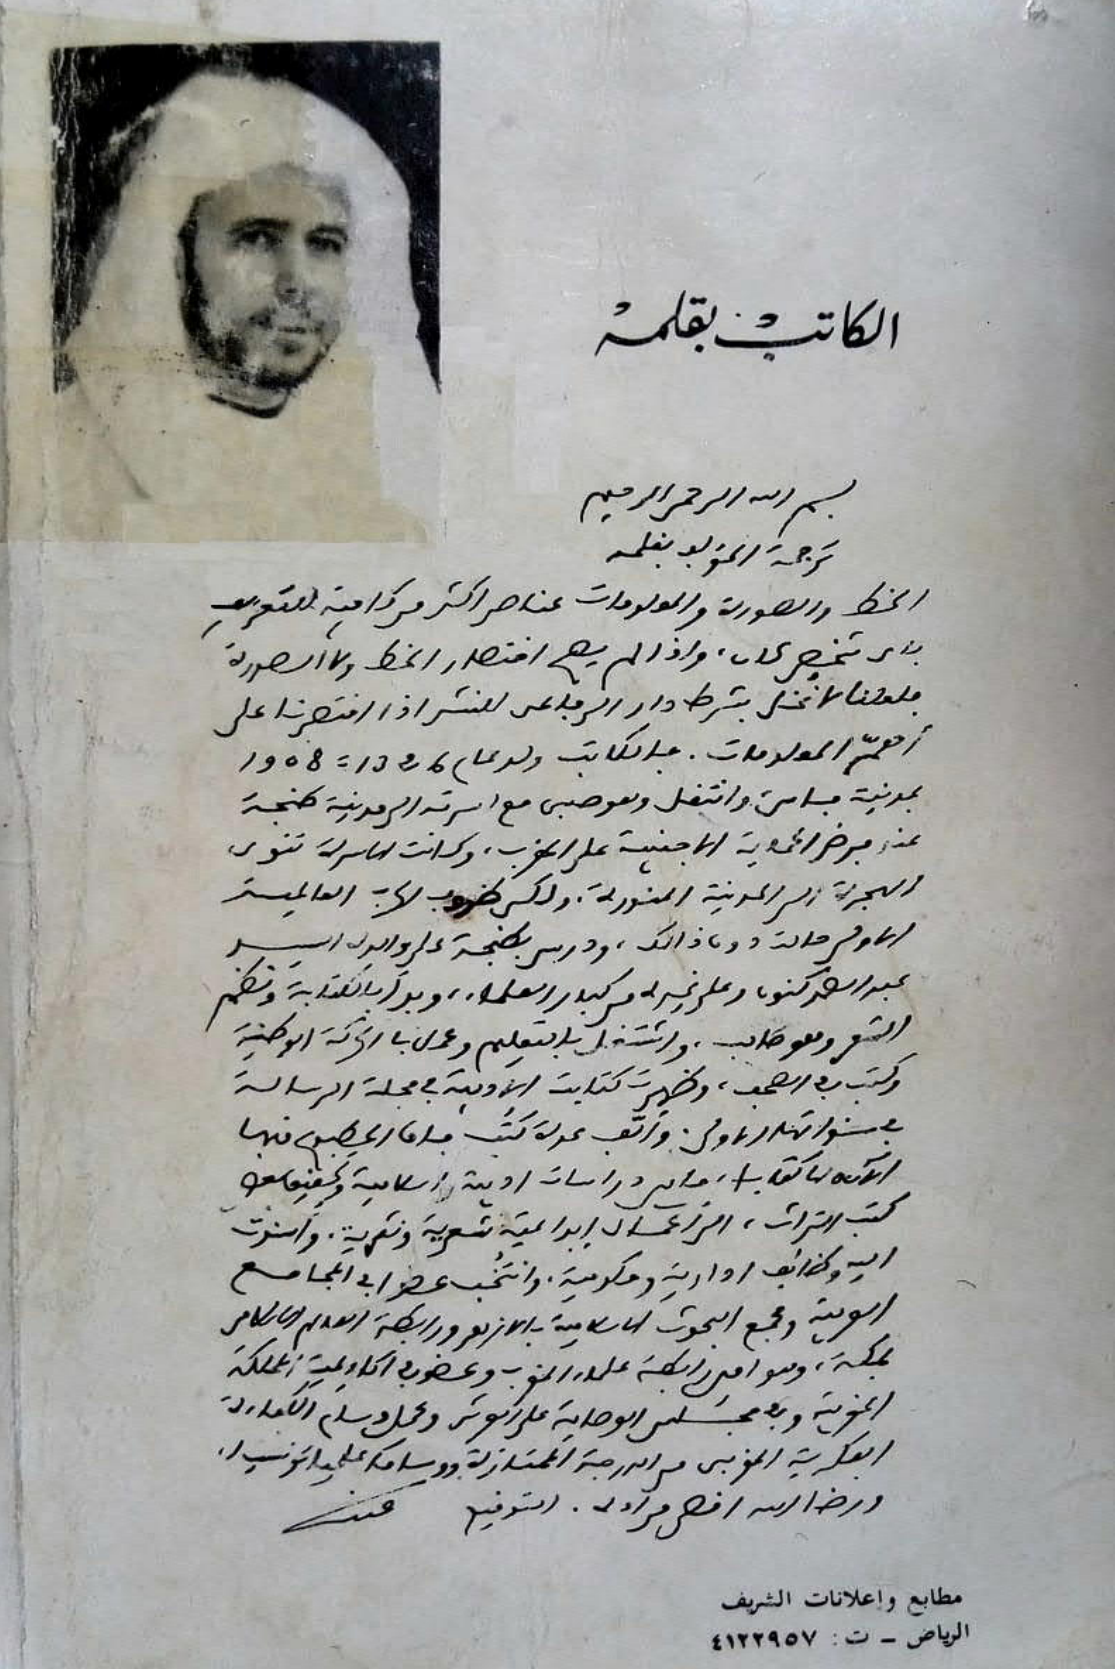 الكاتب بقلمه
بسم الله الرحمن الرحيم
ترجمة المؤلف بقلمه
الخط والصورة والمعلومات عناصر أكثر من كافية للتعريف
بأي شخص كان، وإذا لم يصح اختصار الخط ولا الصورة
فلعلنا لا نخل بشرط دار الرفاعي للنشر إذا اقتصرنا على
أهمّ المعلومات. فالكاتب ولد عام 1326 = 1908
بمدينة فاس وانتقل وهو صبي مع أسرته إلى مدينة طنجة
عند فرض الحماية الأجنبية على المغرب، وكانت الأسرة تنوي
الهجرة إلى المدينة المنورة، ولكن ظروف الحرب العالمية
الأولى حالت دون ذلك، ودرس بطنجة على والده السيد
عبد الصمد كنون وعلى غيره من كبار العلماء، وبدأ بالكتابة ونظم
الشعر وهو طالب، واشتغل بالتعليم وعمل بالحركة الوطنية
وكتب في الصحف، وظهرت كتابته الأدبية في مجلة الرسالة
في سنواتها الأولى. وألّف عدة كتب
الآن كتابا، ما بين دراسات أدبية إسلامية وتحقيق لبعض
كتب التراث، إلى أعمال إبداعية شعرية ونثرية. وأسندت
إليه وظائف إدارية وحكومية. وانتُخب عضوا في المجامع
العربية ومجمع البحوث الإسلامية بالأزهر ورابطة العالم الإسلامي
بمكة، وهو أمين رابطة علماء المغرب وعضو في أكاديمية المملكة
المغربية وفي مجلس الوصاية على العرش وحمل وسام الكفاءة
الفكرية المغربي من الدرجة الممتازة ووساما علميا تونسيا.
ورضا الله أقصى مراده. التوقيع
مطابع وإعلانات الشريف
الرياض ـ ت : ٤١٢٢٩٥٧